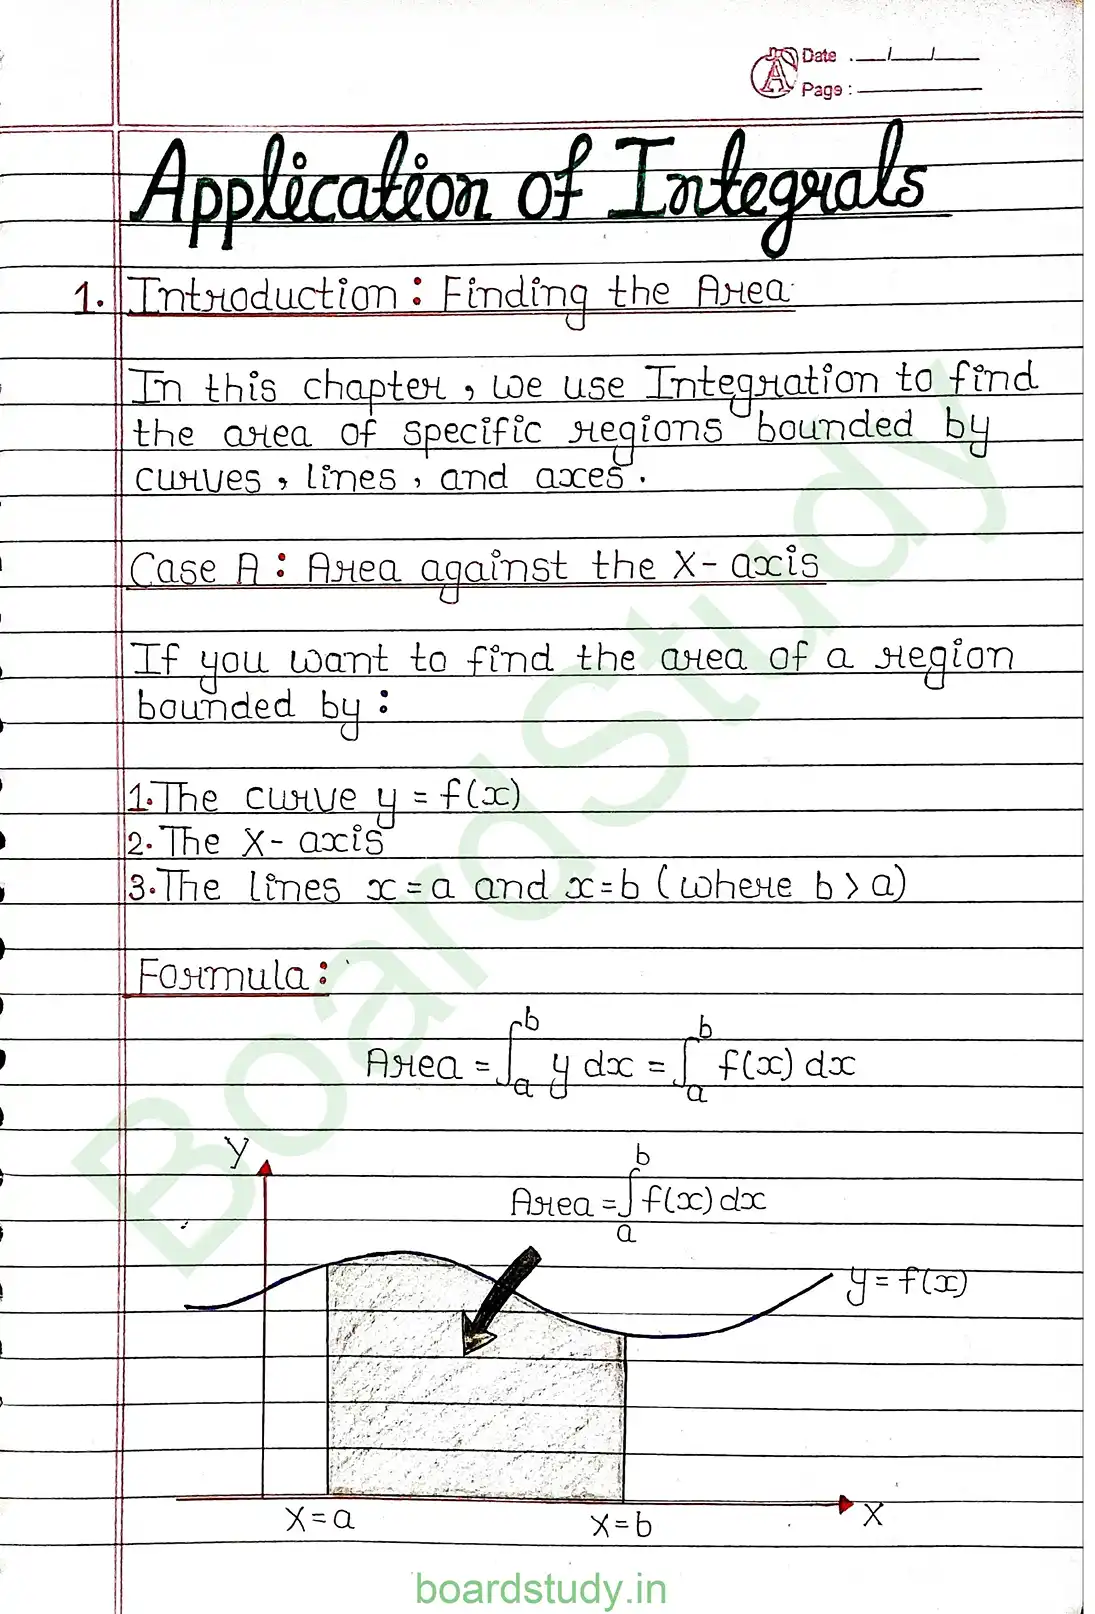 Date : __/__/__
Page :
Application of Integrals
1. Introduction : Finding the Area
In this chapter, we use Integration to find
the area of specific regions bounded by
curves, lines, and axes.
Case A : Area against the X-axis
If you want to find the area of a region
bounded by :
1. The curve y = f(x)
2. The X-axis
3. The lines x = a and x = b (where b > a)
Formula :
Area = ∫_a^b y dx = ∫_a^b f(x) dx
Y
Area = ∫_a^b f(x) dx
y = f(x)
X = a
X = b
X
BoardStudy
boardstudy.in